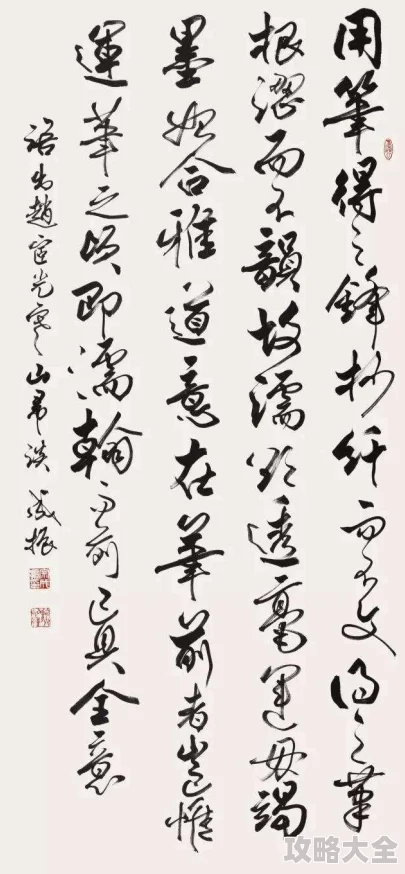 用筆得之鋒抄纤而不文得之筆
根澀而不韻故濡欲透毫運毋竭
墨始合雅道意在筆前者豈惟
運筆之頃即濡翰而前已具全意
語出趙宧光寒山帚談 振
攻略大全